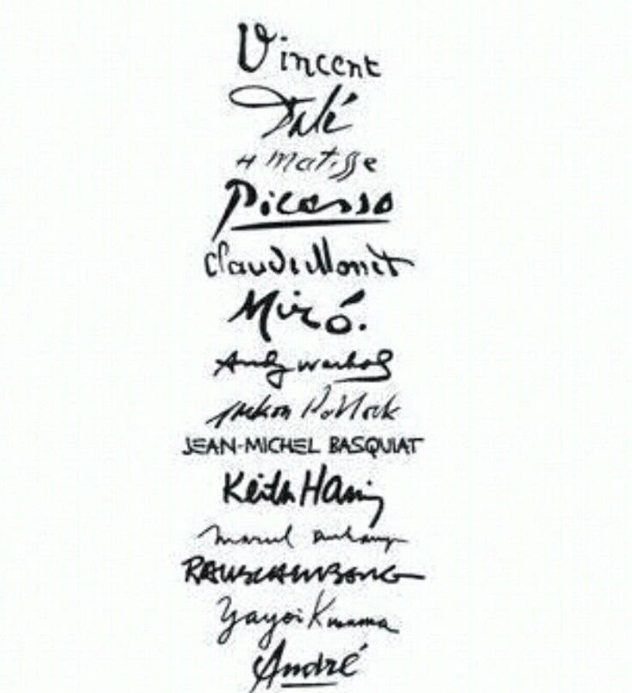 Vincent
Dalí
H Matisse
Picasso
Claude Monet
Miró.
Andy Warhol
Jackson Pollock
JEAN-MICHEL BASQUIAT
Keith Haring
Marcel Duchamp
RAUSCHENBERG
Yayoi Kusama
André